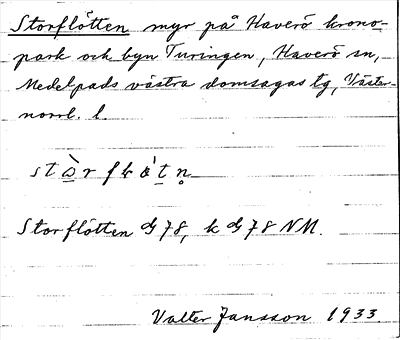 Storflötten myr på Haverö krono-
park och byn Turingen, Haverö sn,
Medelpads västra domsagas tg, Väster-
norrl. l.
Storflötten G 78, k G 78 NM.
Valter Jansson 1933.